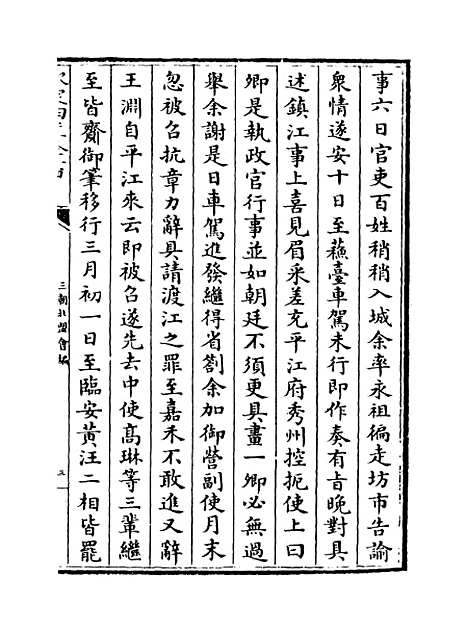 事六日官吏百姓稍稍入城余率永祖徧走坊市告諭
衆情遂安十日至蘓臺車駕未行即作奏有㫖晚對具
述鎮江事上喜見眉采差充平江府秀州控扼使上曰
卿是執政官行事並如朝廷不須更具畫一卿必無過
舉余謝是日車駕進發繼得省劄余加御營副使月末
忽被召抗章力辭具請渡江之罪至嘉禾不敢進又辭
王淵自平江來云即被召遂先去中使髙琳等三輩繼
至皆齎御筆移行三月初一日至臨安黄汪二相皆罷
三朝北盟會編
五